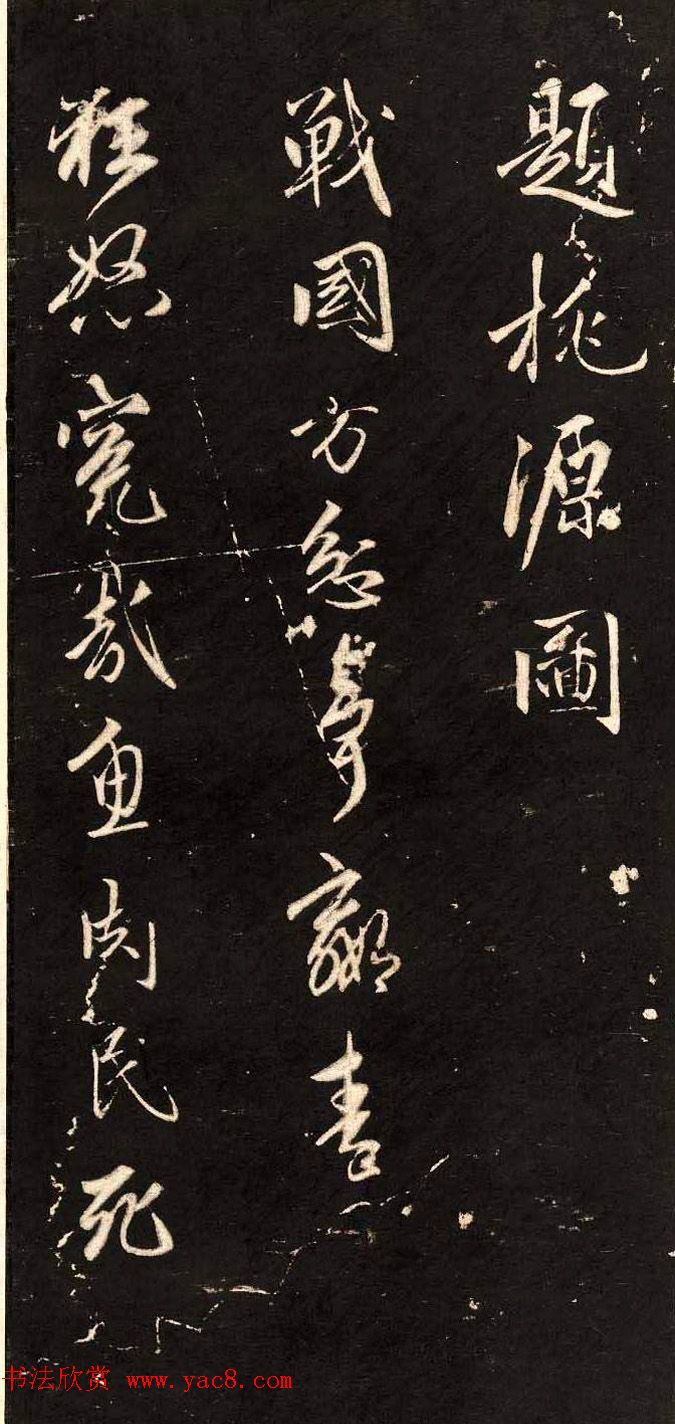 題桃源圖
戰國方忿爭嬴秦
怒寃哉魚肉民死
书法欣赏 www.yac8.com